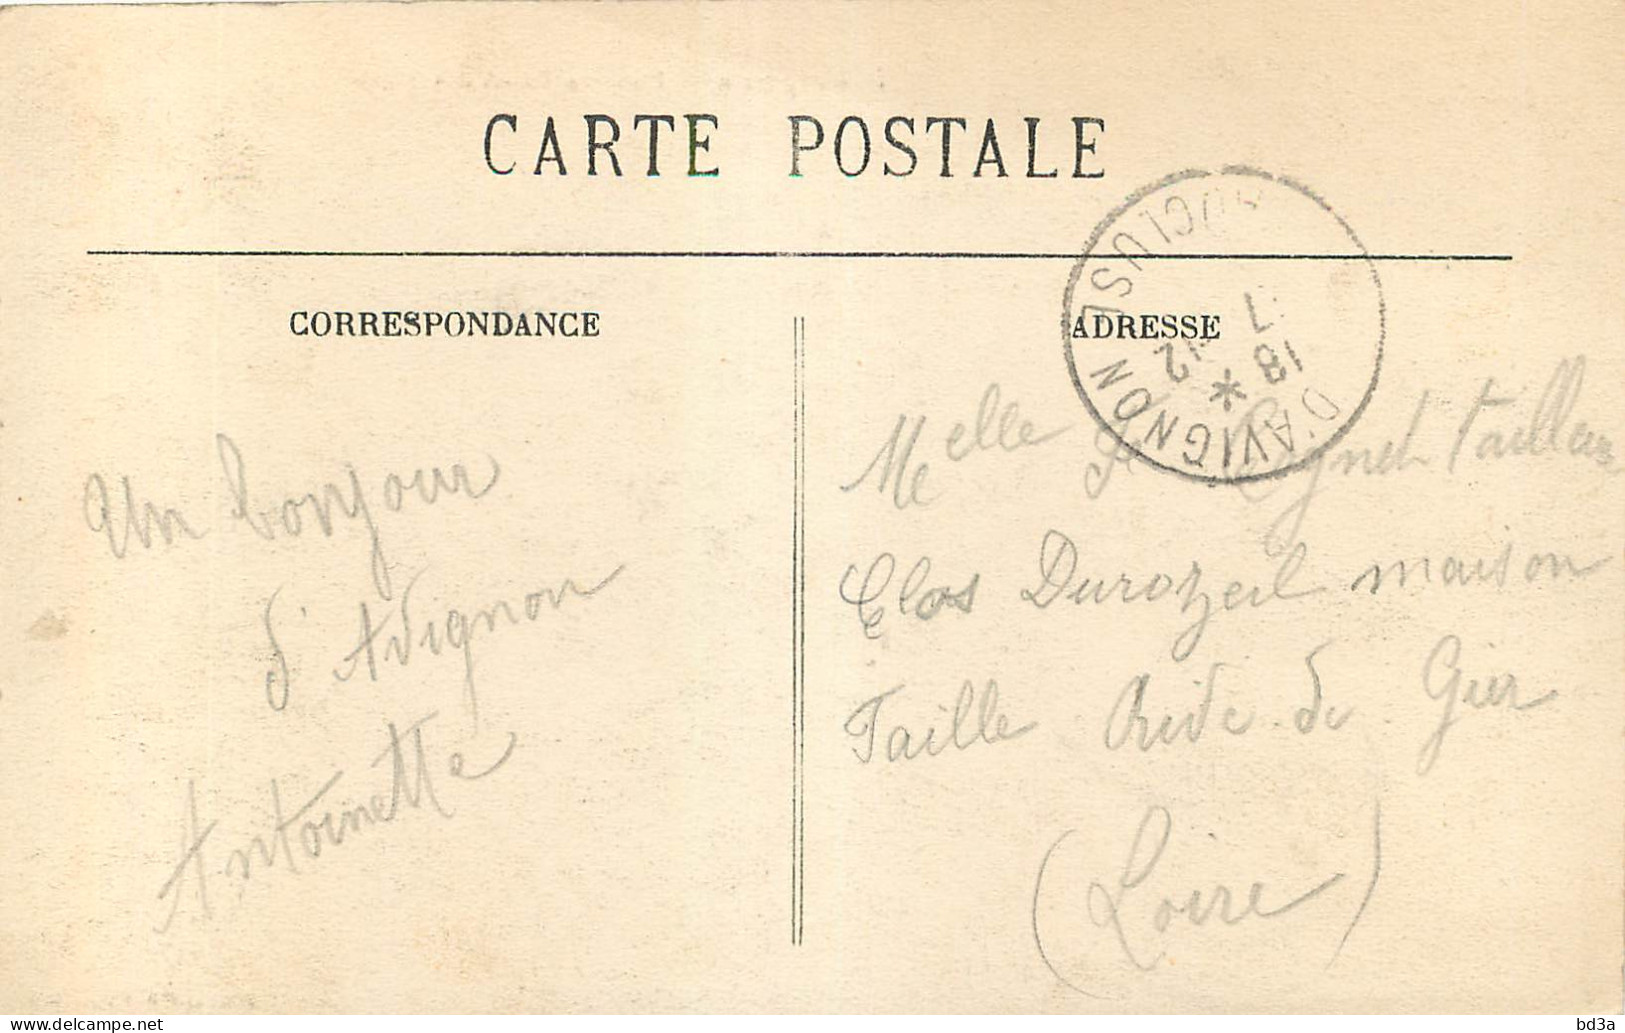 CARTE POSTALE
CORRESPONDANCE
Un bonjour
d'Avignon
Antoinette
ADRESSE
Melle tailleur
Clos Durozeil maison
Taille Rive de Gier
(Loire)
D'AVIGNON VAUCLUSE
18 * 12
7
delcampe.net
bd3a